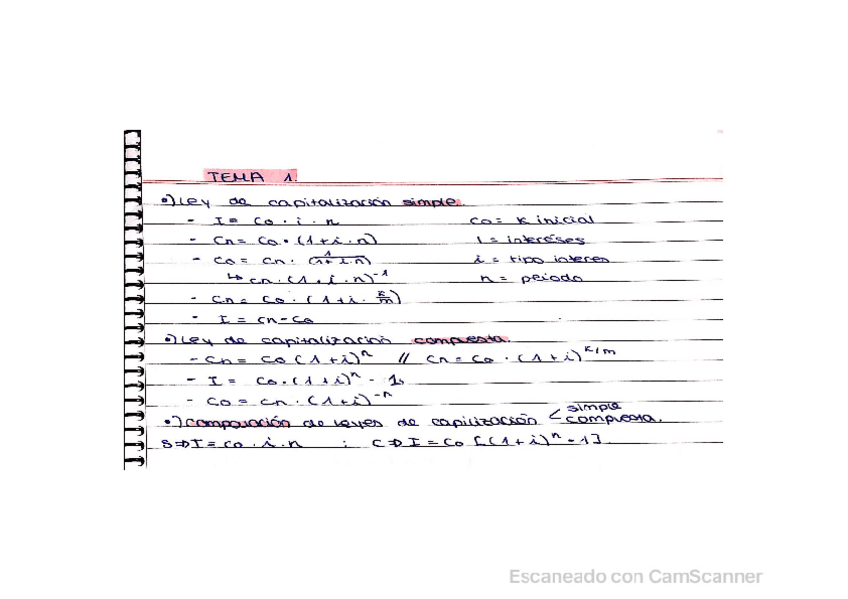 TEMA 1.
•) Ley de capitalización simple.
- I = Co · i · n    Co = K inicial
- Cn = Co · (1 + i · n)    I = intereses
- Co = Cn · (1/(1 + i · n))    i = tipo interes
↳ Cn · (1 + i · n)^-1    n = periodo
- Cn = Co · (1 + i · K/m)
- I = Cn - Co
•) Ley de capitalización compuesta.
- Cn = Co (1 + i)^n // Cn = Co · (1 + i)^K/m
- I = Co · (1 + i)^n - 1.
- Co = Cn · (1 + i)^-n
•) Comparación de leyes de capilización < simple compuesta.
S ⇒ I = Co · i · n ; C ⇒ I = Co [(1 + i)^n - 1].
Escaneado con CamScanner